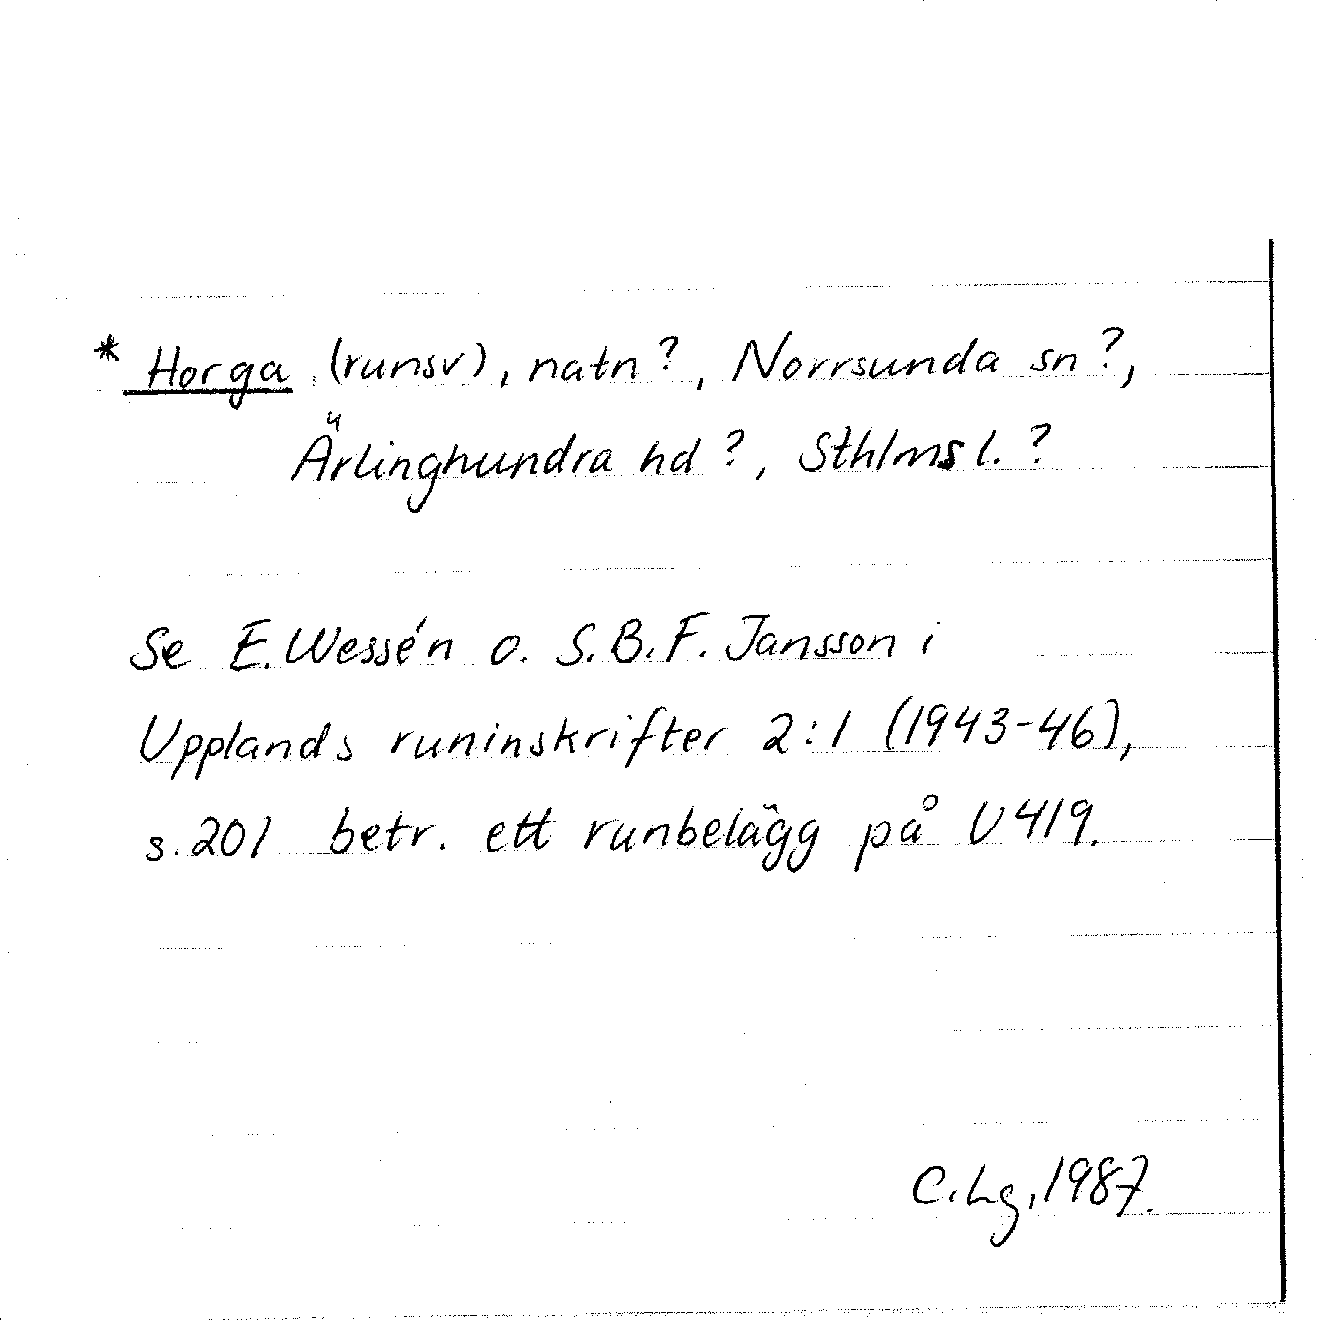 * Horga (runsv), natn?, Norrsunda sn?,
Ärlinghundra hd?, Sthlms l.?
Se E. Wessén o. S.B.F. Jansson i
Upplands runinskrifter 2:1 (1943-46),
s. 201 betr. ett runbelägg på U 419.
C. Lg, 1987.